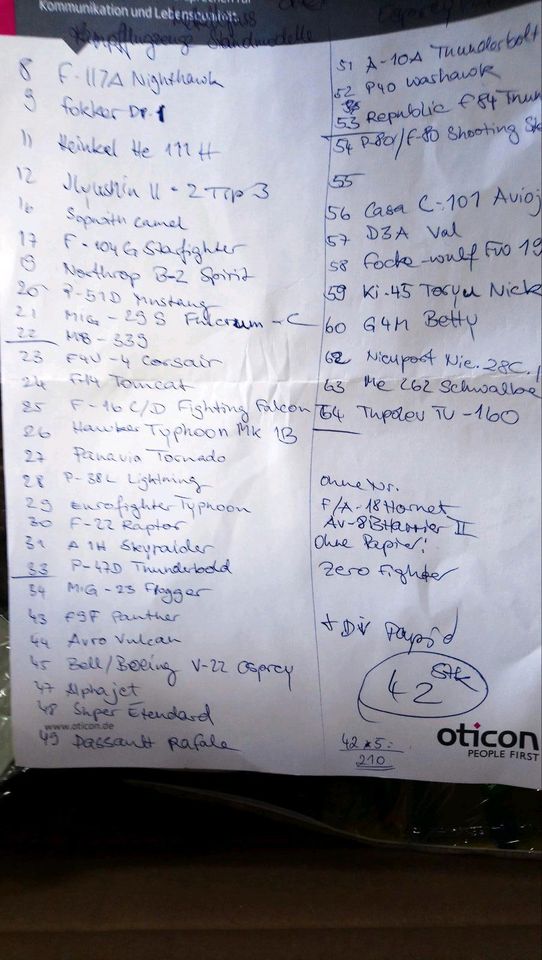 Kommunikation und Lebensqualität.
Kampfflugzeuge Standmodelle
8 F-117A Nighthawk
9 Fokker Dr. 1
11 Heinkel He 111 H
12 Ilyushin Il-2 Typ 3
16 Sopwith Camel
17 F-104G Starfighter
19 Northrop B-2 Spirit
20 P-51D Mustang
21 MiG-29 S Fulcrum-C
22 MB-339
23 F4U-4 Corsair
24 F-14 Tomcat
25 F-16 C/D Fighting Falcon
26 Hawker Typhoon Mk 1B
27 Panavia Tornado
28 P-38L Lightning
29 Eurofighter Typhoon
30 F-22 Raptor
31 A 1H Skyraider
33 P-47D Thunderbold
34 MiG-23 Flogger
43 F9F Panther
44 Avro Vulcan
45 Bell/Boeing V-22 Osprey
47 Alphajet
48 Super Etendard
www.oticon.de
49 Dassault Rafale
51 A-10A Thunderbolt
52 P40 Washawk
53 Republic F84 Thun
54 P-80/F-80 Shooting
55
56 Casa C-101 Avioj
57 D3A Val
58 Focke-wulf FW 19
59 Ki-45 Toryu Nick
60 G4M Betty
62 Nieuport Nie. 28C.
63 Me 262 Schwalbe
64 Tupolev TU-160
ohne Nr.
F/A-18 Hornet
AV-8B Harrier II
ohne Papier!
Zero Fighter
42 Stk
42 * 5:
210
oticon
PEOPLE FIRST